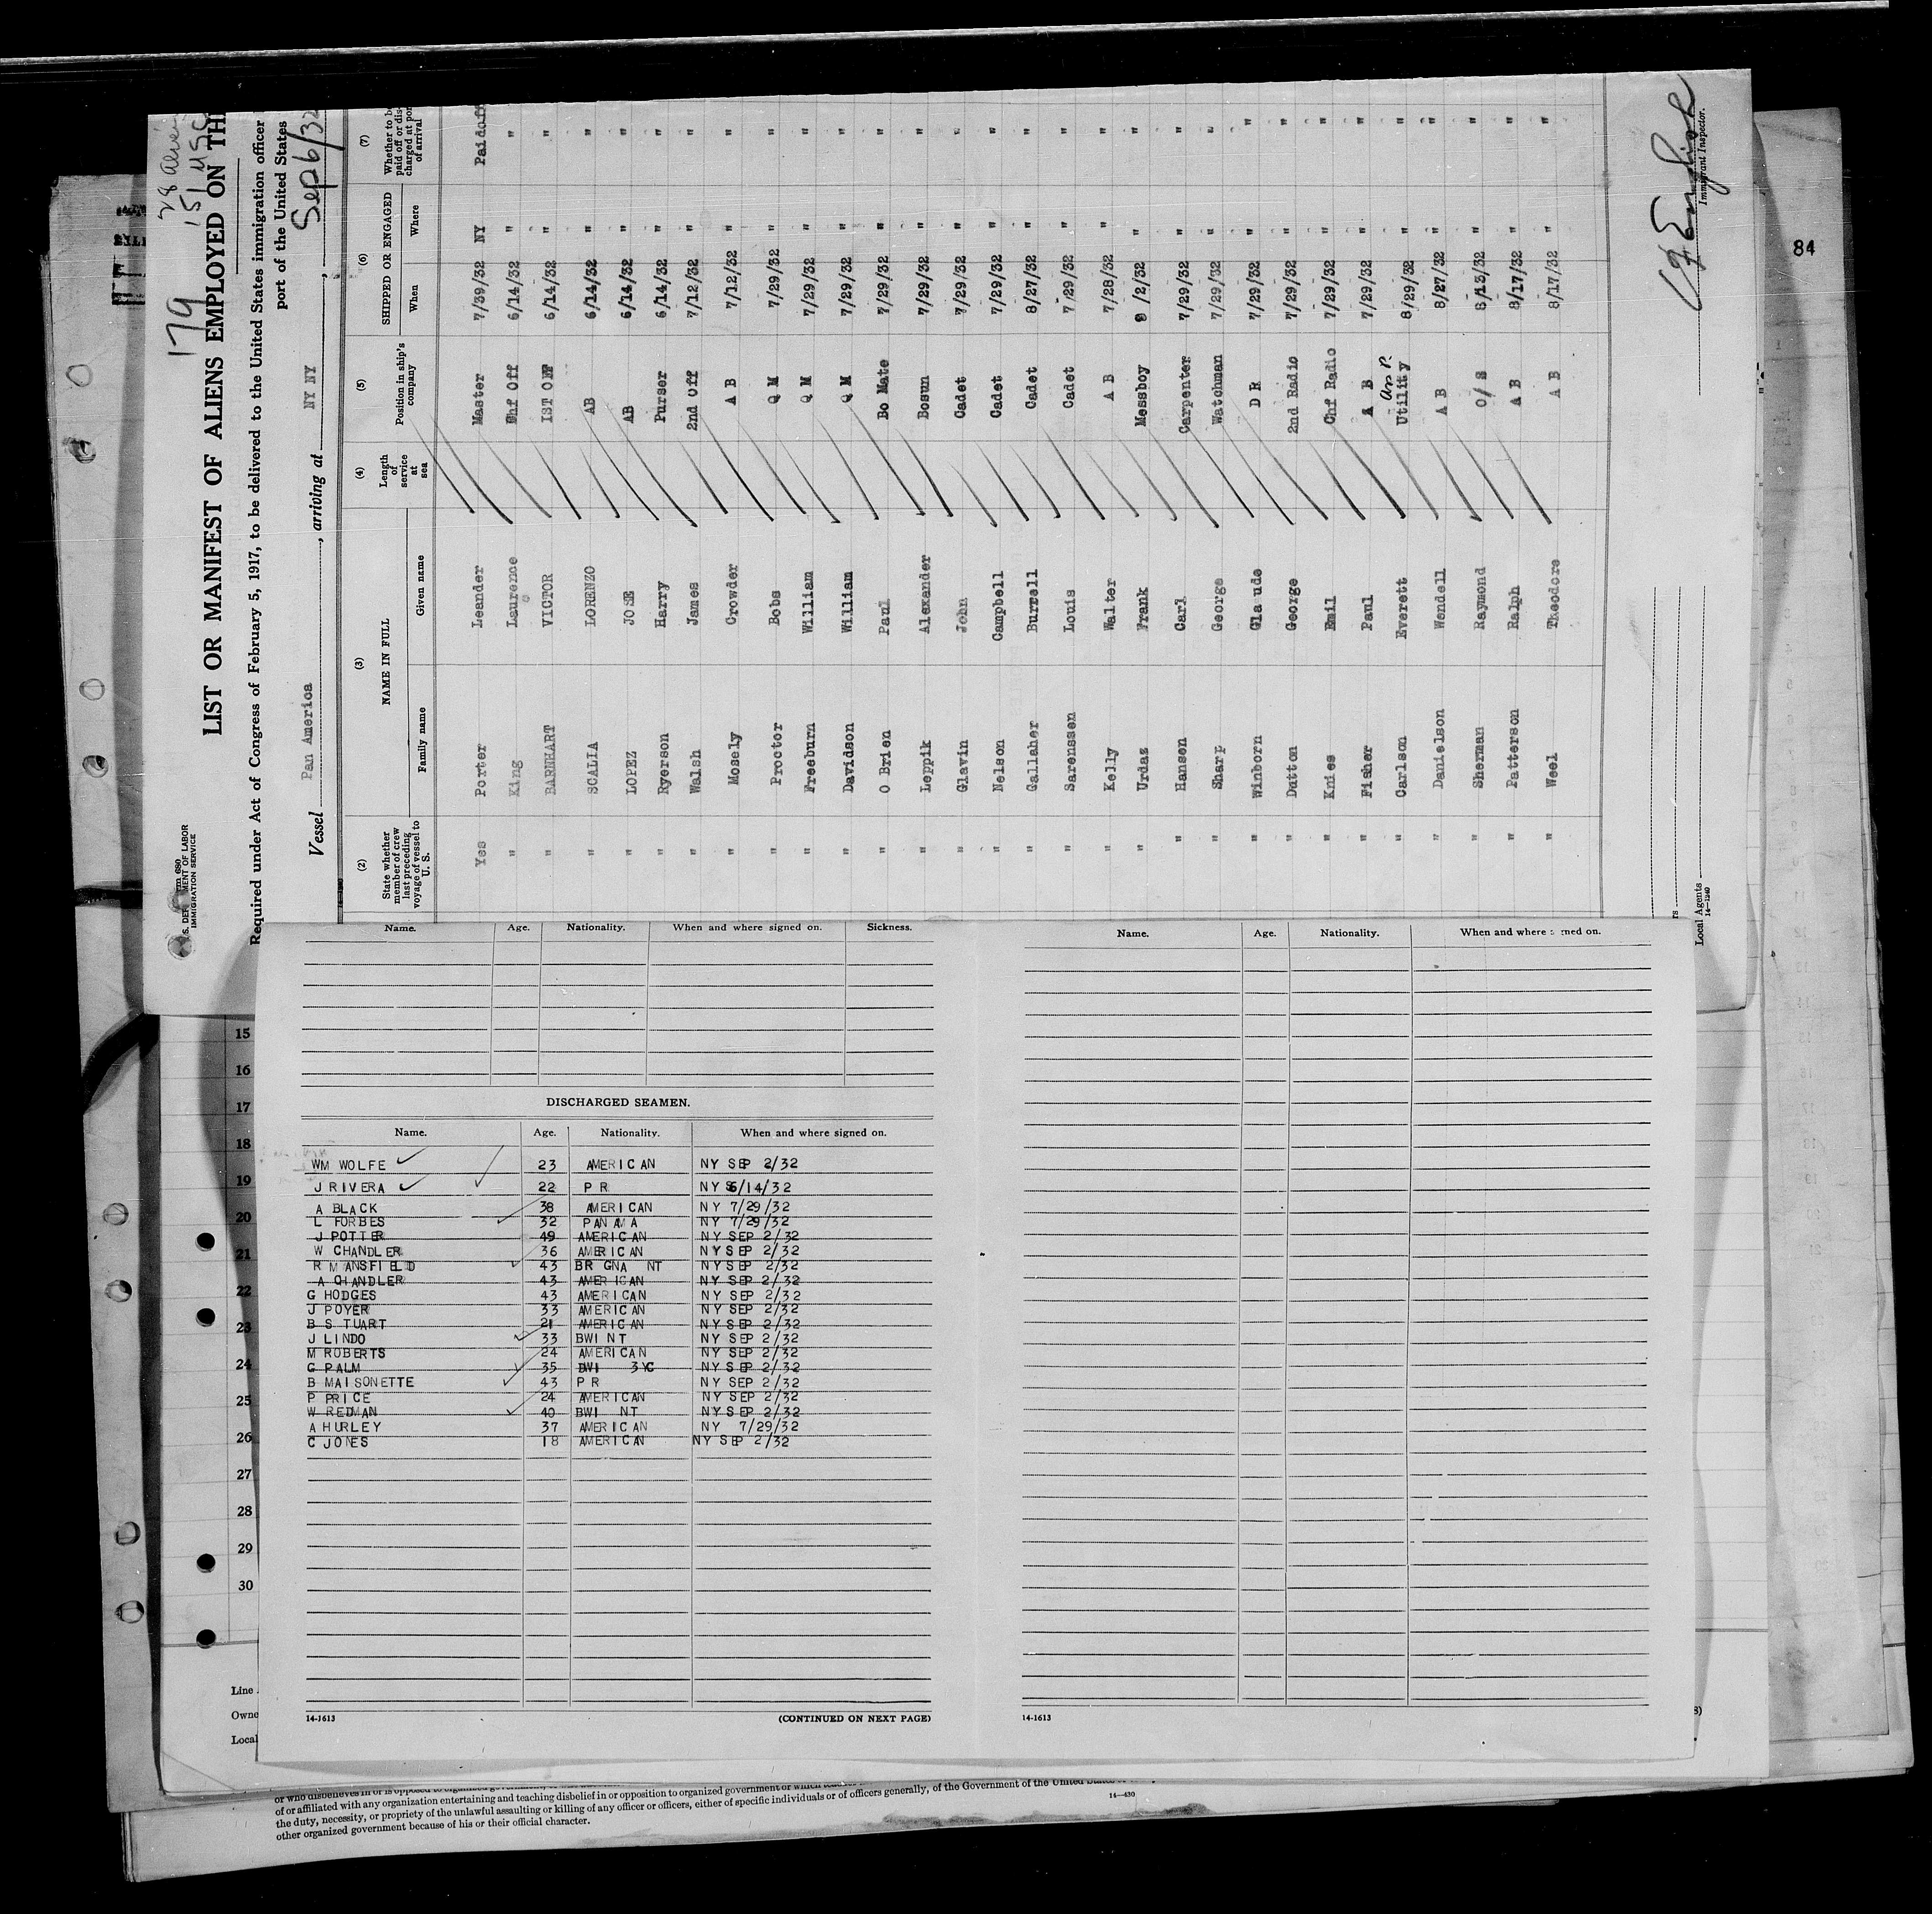 179
28 Aliens
151 USC
U.S. DEPARTMENT OF LABOR
IMMIGRATION SERVICE
LIST OR MANIFEST OF ALIENS EMPLOYED ON TH
Required under Act of Congress of February 5, 1917, to be delivered to the United States immigration officer
port of the United States
Vessel Pan America, arriving at NY NY, Sep 6/32
(2) (3) (4) (5) (6) (7)
State whether member of crew last preceding voyage of vessel to U. S. NAME IN FULL Family name Given name Length of service at sea Position in ship's company SHIPPED OR ENGAGED When Where Whether to be paid off or discharged at port of arrival
Yes Porter Leander Master 7/39/32 NY Paidoff
" King Laurence Hhf Off 6/14/32 " "
" BARNHART VICTOR IST OFF 6/14/32 " "
" SCALIA LORENZO AB 6/14/32 " "
" LOPEZ JOSE AB 6/14/32 " "
" Ryerson Harry Purser 6/14/32 " "
" Walsh James 2nd Off 7/12/32 " "
" Mosely Crowder A B 7/12/32 " "
" Proctor Bobs Q M 7/29/32 " "
" Freeburn William Q M 7/29/32 " "
" Davidson William Q M 7/29/32 " "
" O Brien Paul Bo Mate 7/29/32 " "
" Leppik Alexander Bosun 7/29/32 " "
" Glavin John Cadet 7/29/32 " "
" Nelson Campbell Cadet 7/29/32 " "
" Gallaher Burzell Cadet 8/27/32 " "
" Sarenssen Louis Cadet 7/29/32 " "
" Kelly Walter A B 7/28/32 " "
" Urdaz Frank Messboy 9/2/32 " "
" Hansen Carl Carpenter 7/29/32 " "
" Sharp George Watchman 7/29/32 " "
" Winborn Glaude D R 7/29/32 " "
" Dutton George 2nd Radio 7/29/32 " "
" Knies Emil Chf Radio 7/29/32 " "
" Fisher Paul A B 7/29/32 " "
" Carlson Everett Utility 8/29/32 " "
" Danielson Wendell A B 8/27/32 " "
" Sherman Raymond O/S 8/13/32 " "
" Patterson Ralph A B 8/17/32 " "
" Weel Theodore A B 8/17/32 " "
Immigrant Inspector.
Local Agents
14-1240
84
Name. Age. Nationality. When and where signed on. Sickness.
DISCHARGED SEAMEN.
Name. Age. Nationality. When and where signed on.
WM WOLFE 23 AMERICAN NY SEP 2/32
J RIVERA 22 P R NY 6/14/32
A BLACK 38 AMERICAN NY 7/29/32
L FORBES 32 PANAMA NY 7/29/32
J POTTER 49 AMERICAN NY SEP 2/32
W CHANDLER 36 AMERICAN NY SEP 2/32
R MANSFIELD 43 BR GNA NT NY SEP 2/32
A CHANDLER 43 AMERICAN NY SEP 2/32
G HODGES 43 AMERICAN NY SEP 2/32
J POYER 33 AMERICAN NY SEP 2/32
B STUART 21 AMERICAN NY SEP 2/32
J LINDO 33 BWI NT NY SEP 2/32
M ROBERTS 24 AMERICAN NY SEP 2/32
G PALM 35 DWI 3YC NY SEP 2/32
B MAISONETTE 43 P R NY SEP 2/32
P PRICE 24 AMERICAN NY SEP 2/32
W REDMAN 40 BWI NT NY SEP 2/32
A HURLEY 37 AMERICAN NY 7/29/32
C JONES 18 AMERICAN NY SEP 2/32
14-1613
(CONTINUED ON NEXT PAGE)
Name. Age. Nationality. When and where signed on.
14-1613
15
16
17
18
19
20
21
22
23
24
25
26
27
28
29
30
Line
Owne
Local
of or affiliated with any organization entertaining and teaching disbelief in or opposition to organized government or which
the duty, necessity, or propriety of the unlawful assaulting or killing of any officer or officers, either of specific individuals or of officers generally, of the Government of the United
other organized government because of his or their official character.
14-430